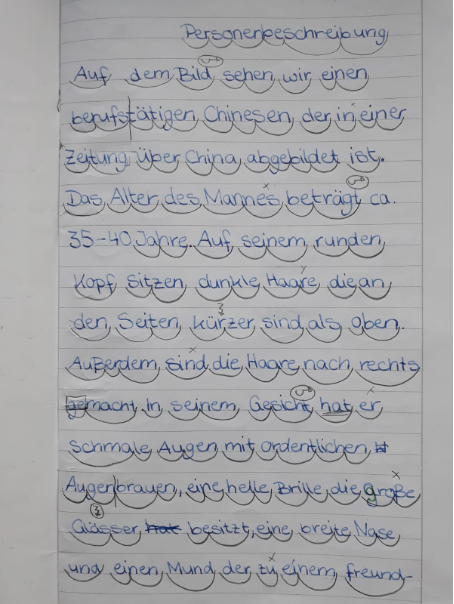 Personenbeschreibung
Auf dem Bild sehen wir einen
berufstätigen Chinesen, der in einer
Zeitung über China abgebildet ist.
Das Alter des Mannes beträgt ca.
35-40 Jahre. Auf seinem runden
Kopf sitzen dunkle Haare, die an
den Seiten kürzer sind als oben.
Außerdem sind die Haare nach rechts
gemacht. In seinem Gesicht hat er
schmale Augen mit ordentlichen
Augenbrauen, eine helle Brille, die große
Glässer hat besitzt, eine breite Nase
und einen Mund der zu einem freund-